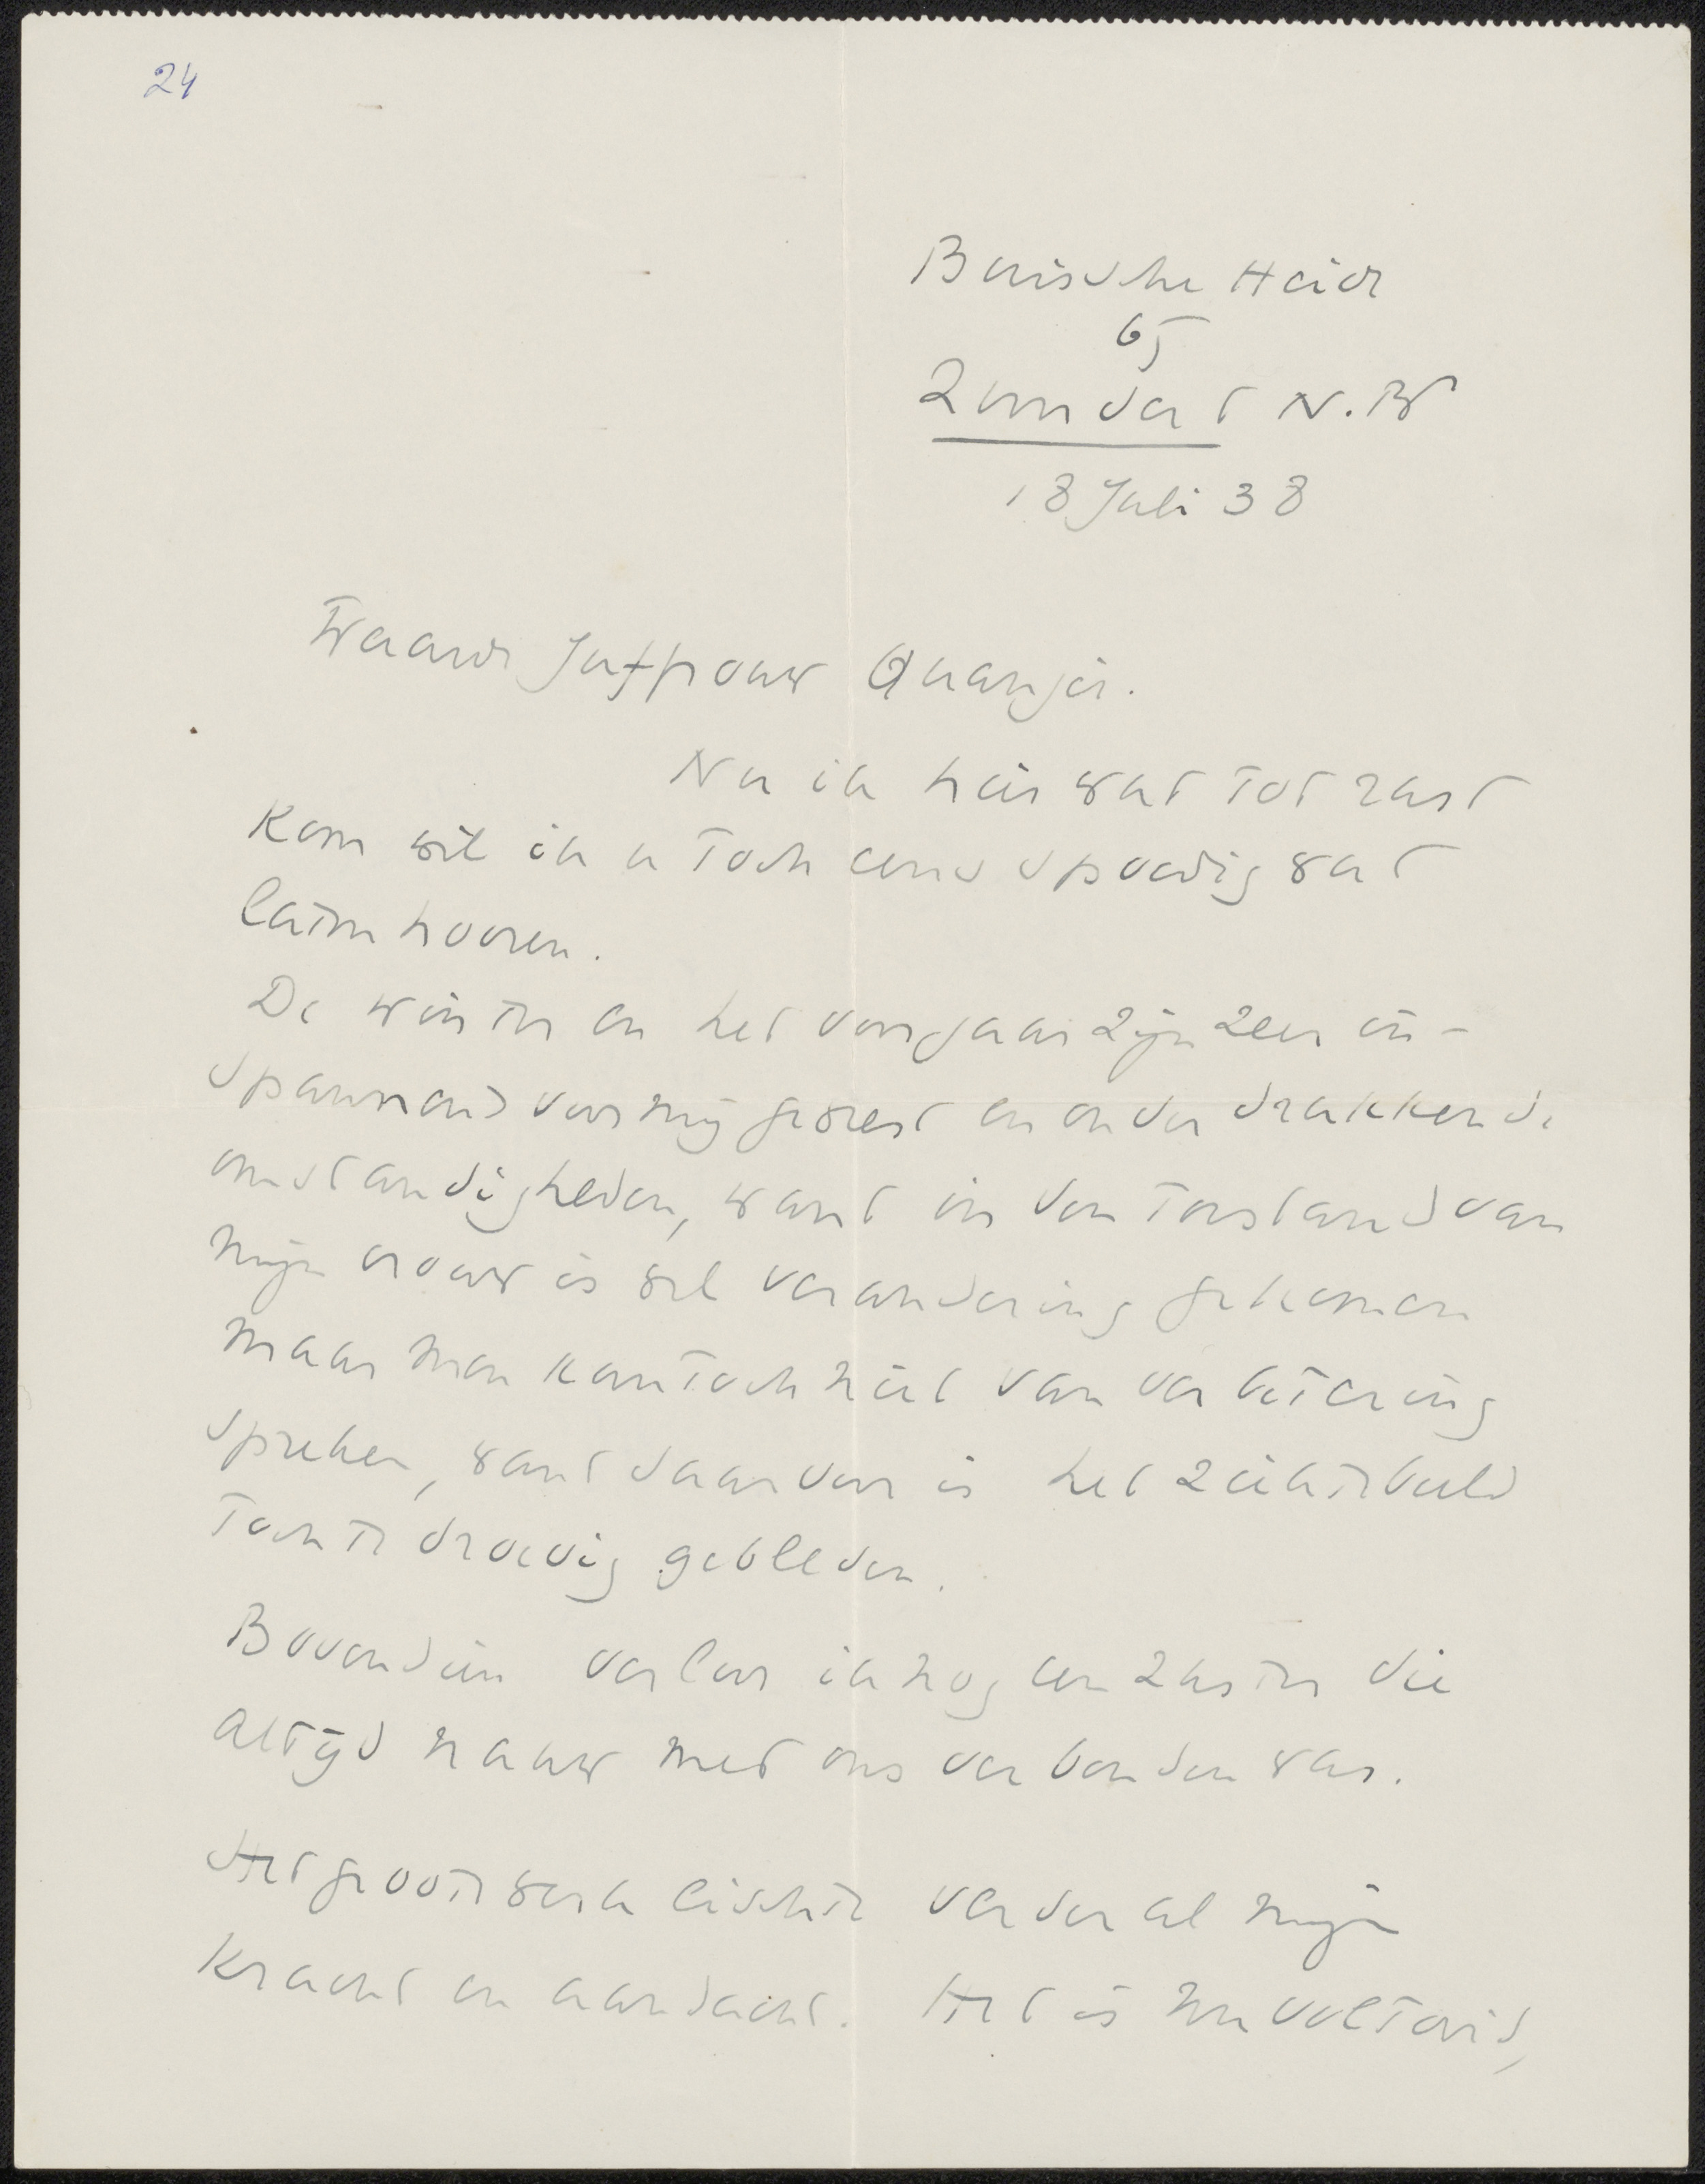 24
Buissche Heide
65
Zundert N.B
18 Juli 38
Waarde Juffrouw Quanjer.
Nu ik hier wat tot rust
kom wil ik u toch eens spoedig wat
laten hooren.
De winter en het voorjaar zijn zeer in-
spannend voor mij geweest en onder drukkende
omstandigheden, want in den toestand van
mijn vrouw is wel verandering gekomen
maar men kan toch niet van verbetering
spreken, want daarvoor is het ziektebeeld
toch te droevig gebleven.
Bovendien verloor ik nog een zuster die
altijd nauw met ons verbonden was.
Het groote werk eischte verder al mijn
kracht en aandacht. Het is nu voltooid,